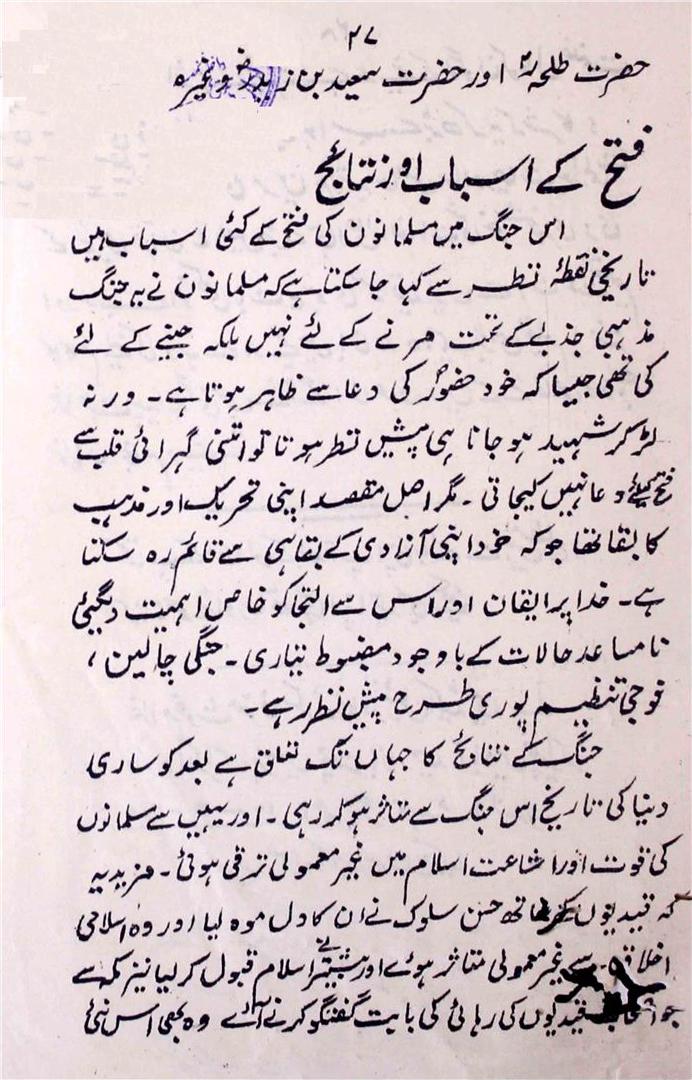 ۲۷
حضرت طلحہؓ اور حضرت سعید بن زیدؓ وغیرہ
فتح کے اسباب اور نتائج
اس جنگ میں مسلمانوں کی فتح کے کئی اسباب ہیں
تاریخی نقطۂ نظر سے کہا جا سکتا ہے کہ مسلمانوں نے یہ جنگ
مذہبی جذبے کے تحت مرنے کے لئے نہیں بلکہ جینے کے لئے
کی تھی جیسا کہ خود حضورؐ کی دعا سے ظاہر ہوتا ہے۔ ورنہ
لڑ کر شہید ہو جانا ہی پیش نظر ہوتا تو اتنی گہرائی قلب سے
فتح کیلئے دعا نہیں کیجاتی۔ مگر اصل مقصد اپنی تحریک اور مذہب
کا بقا تھا جو کہ خود اپنی آزادی کے بقا ہی سے قائم رہ سکتا
ہے۔ خدا پر ایقان اور اس سے التجا کو خاص اہمیت دیگئی
نامساعد حالات کے باوجود مضبوط تیاری۔ جنگی چالیں،
فوجی تنظیم پوری طرح پیش نظر رہے۔
جنگ کے نتائج کا جہاں تک تعلق ہے بعد کو ساری
دنیا کی تاریخ اس جنگ سے متاثر ہو کر رہی۔ اور یہیں سے مسلمانوں
کی قوت اور اشاعت اسلام میں غیر معمولی ترقی ہوئی۔ مزید یہ
کہ قیدیوں کے ساتھ حسن سلوک نے ان کا دل موہ لیا اور وہ اسلامی
اخلاق سے غیر معمولی متاثر ہوئے اور بیشتر نے اسلام قبول کر لیا نیز مکہ سے
جو قیدیوں کی رہائی کی بابت گفتگو کرنے آئے وہ بھی اس نئی